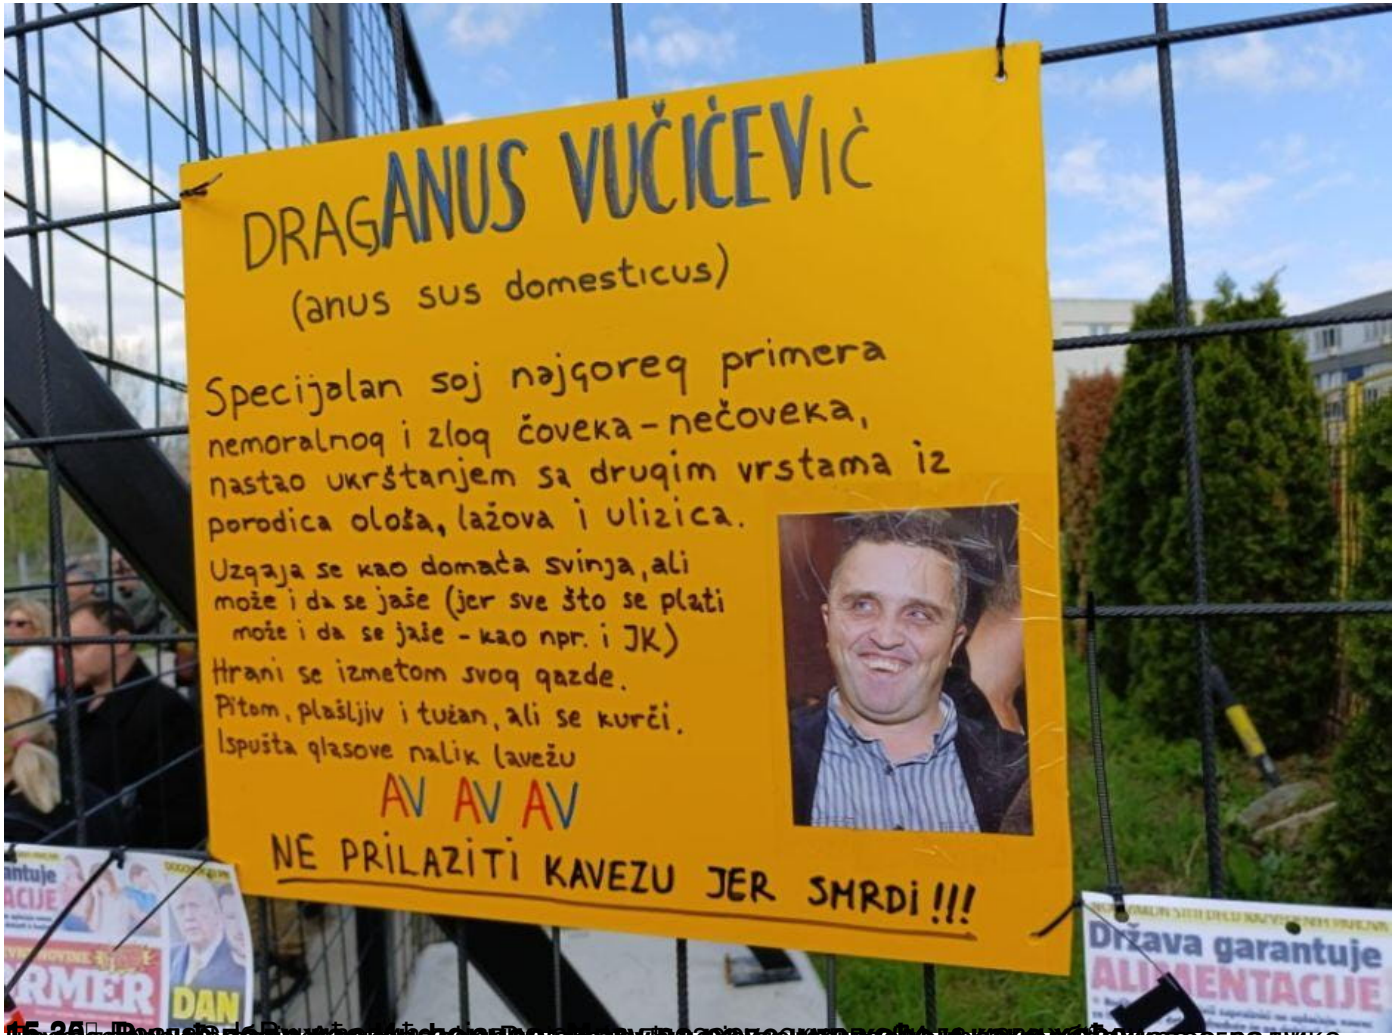 DRAGANUS VUČIĆEVIĆ
(anus sus domesticus)
Specijalan soj najgoreg primera
nemoralnog i zlog čoveka - nečoveka,
nastao ukrštanjem sa drugim vrstama iz
porodica ološa, lažova i ulizica.
Uzgaja se kao domaća svinja, ali
može i da se jaše (jer sve što se plati
može i da se jaše - kao npr. i JK)
Hrani se izmetom svog gazde.
Pitom, plašljiv i tužan, ali se kurči.
Ispušta glasove nalik lavežu
AV AV AV
NE PRILAZITI KAVEZU JER SMRDI!!!
antuje
ACIJE
RMER
DAN
Država garantuje
ALIMENTACIJE